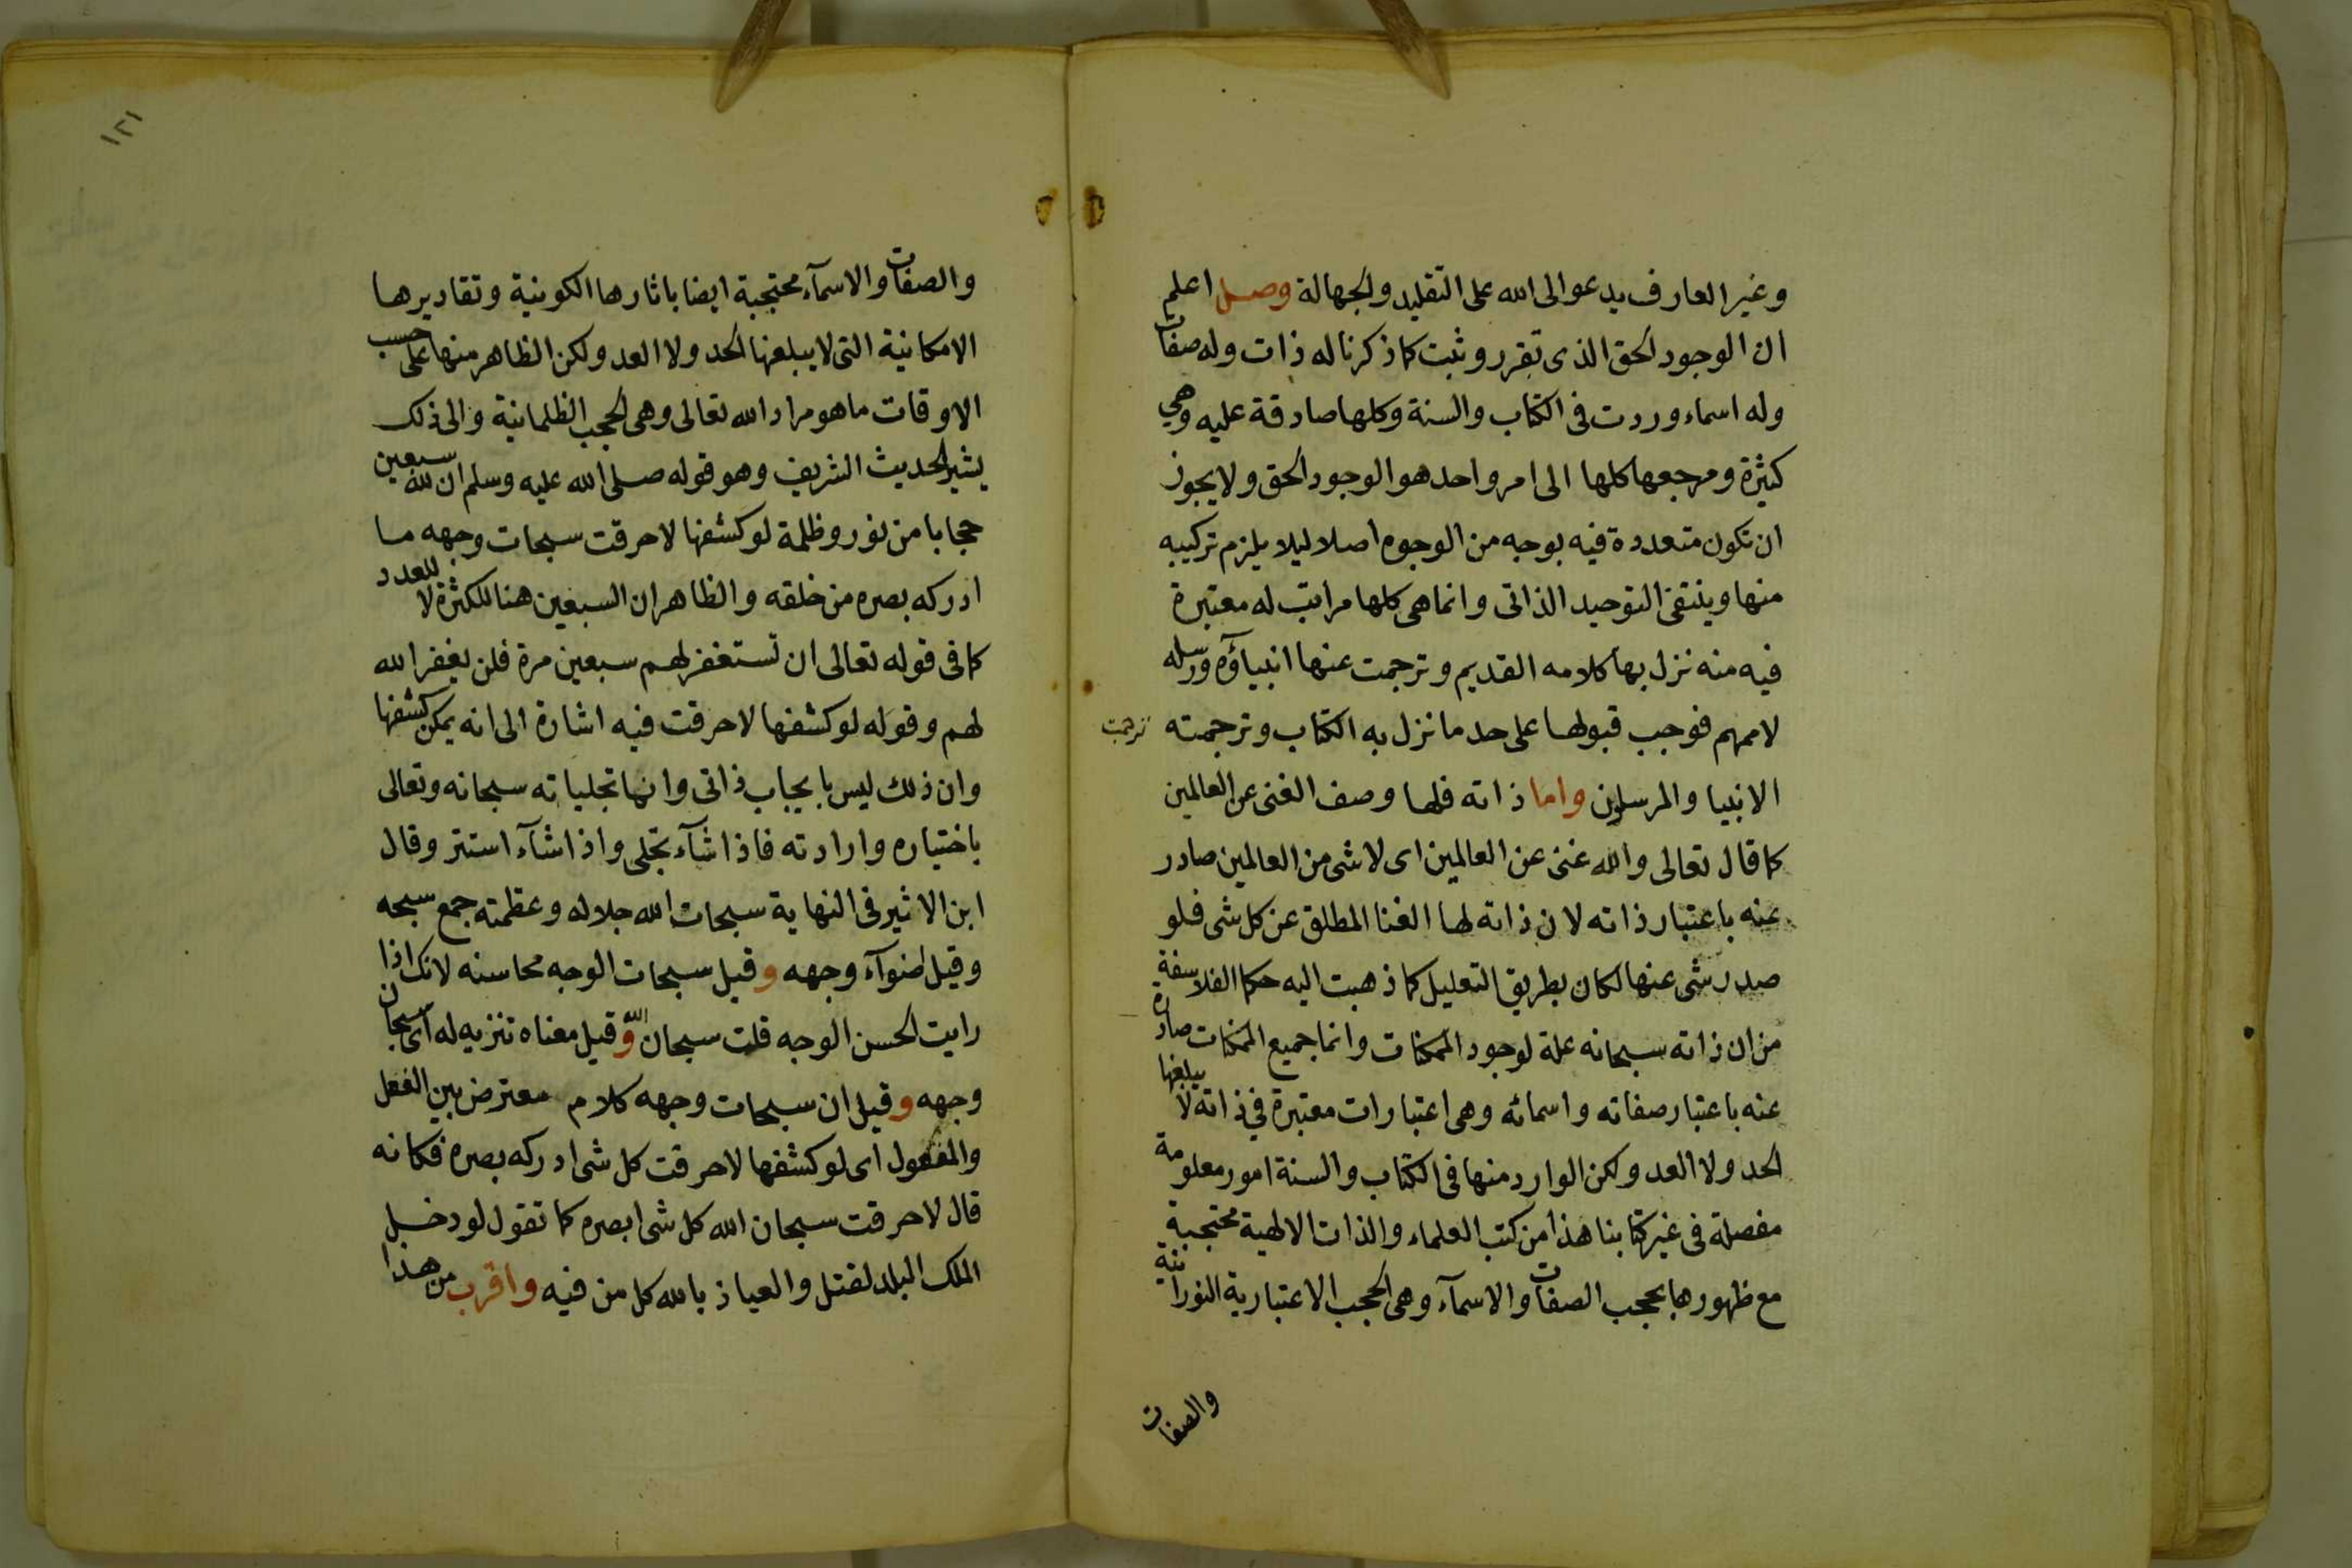 وغير العارف يدعو الى الله على التقليد والجهالة وصل اعلم
ان الوجود الحق الذى تقرر وثبت كما ذكرنا له ذات وله صفات
وله اسماء وردت فى الكتاب والسنة وكلها صادقة عليه وهي
كثيرة ومرجعها كلها الى امر واحد هو الوجود الحق ولا يجوز
ان تكون متعددة فيه بوجه من الوجوه اصلا ليلا يلزم تركيبه
منها وينتفى التوحيد الذاتى وانما هى كلها مراتب له معتبرة
فيه منه نزل بها كلامه القديم وترجمت عنها انبياؤه ورسله
لاممهم فوجب قبولها على حد ما نزل به الكتاب وترجمته
ترجمت
الانبيا والمرسلون واما ذاته فلها وصف الغنى عن العالمين
كما قال تعالى والله غنى عن العالمين اى لا شى من العالمين صادر
عنه باعتبار ذاته لان ذاته لها الغنا المطلق عن كل شى فلو
صدر شى عنها لكان بطريق التعليل كما ذهبت اليه حكما الفلاسفة
من ان ذاته سبحانه علة لوجود الممكنات وانما جميع الممكنات صادرة
عنه باعتبار صفاته واسمائه وهى اعتبارات معتبرة في ذاته لا يبلغها
الحد ولا العد ولكن الوارد منها فى الكتاب والسنة امور معلومة
مفصلة فى غير كتابنا هذا من كتب العلماء والذات الالهية محتجبة
مع ظهورها بحجب الصفات والاسمآء وهى الحجب الاعتبارية النورانية
والصفات
١٢١
والصفات والاسمآء محتجبة ايضا باثارها الكونية وتقاديرها
الامكانية التى لا يبلغها الحد ولا العد ولكن الظاهر منها على حسب
الاوقات ما هو مراد الله تعالى وهى الحجب الظلمانية والى ذلك
يشير الحديث الشريف وهو قوله صلى الله عليه وسلم ان لله سبعين
حجابا من نور وظلمة لو كشفها لاحرقت سبحات وجهه ما
ادركه بصره من خلقه والظاهر ان السبعين هنا للكثرة لا للعدد
كما فى قوله تعالى ان تستغفر لهم سبعين مرة فلن يغفر الله
لهم وقوله لو كشفها لاحرقت فيه اشارة الى انه يمكن كشفها
وان ذلك ليس بايجاب ذاتى وانها تجلياته سبحانه وتعالى
باختياره وارادته فاذا شآء تجلى واذا شآء استتر وقال
ابن الاثير فى النهاية سبحات الله جلاله وعظمته جمع سبحه
وقيل اضوآء وجهه وقيل سبحات الوجه محاسنه لانك اذا
رايت الحسن الوجه قلت سبحان الله وقيل معناه تنزيه له اى سبحان
وجهه وقيل ان سبحات وجهه كلام معترض بين الفعل
والمفعول اى لو كشفها لاحرقت كل شى ادركه بصره فكانه
قال لاحرقت سبحان الله كل شى ابصره كما تقول لو دخل
الملك البلد لقتل والعياذ بالله كل من فيه واقرب من هذا